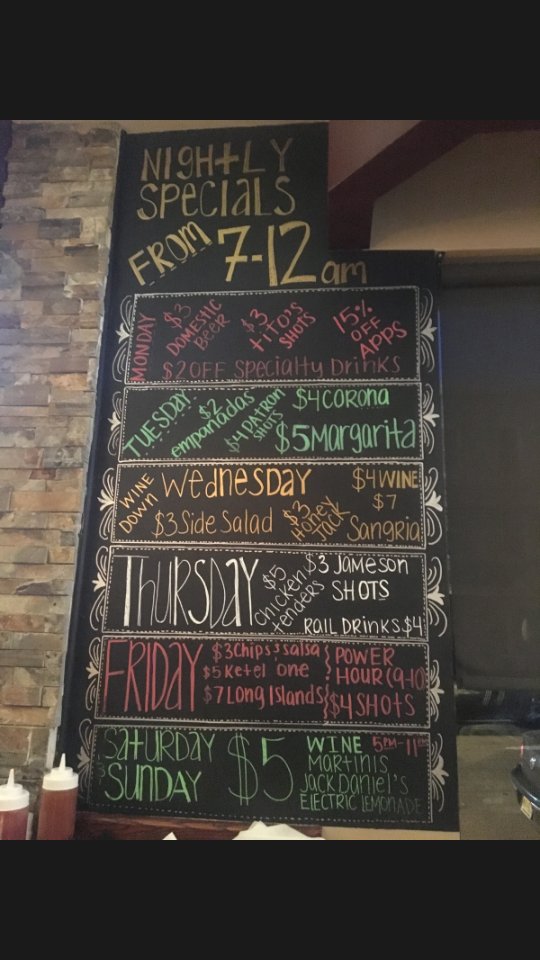 NIGHTLY
SPECIALS
FROM 7-12am
MONDAY
$3 DOMESTIC BEER
$3 TITO'S SHOTS
15% OFF APPS
$2 OFF Specialty Drinks
TUESDAY
$2 empanadas
$4 PATRON SHOTS
$4 CORONA
$5 Margarita
WINE DOWN Wednesday
$3 Side Salad
$3 HONEY JACK
$4 WINE
$7 Sangria
THURSDAY
$5 chicken tenders
$3 Jameson SHOTS
RAIL DRINKS $4
FRIDAY
$3 Chips & salsa
$5 Ketel one
$7 Long Islands
POWER
HOUR (9-10)
$4 SHOTS
SATURDAY
& SUNDAY
$5
WINE 5PM-11PM
MARTINIS
JACK DANIEL'S
ELECTRIC LEMONADE